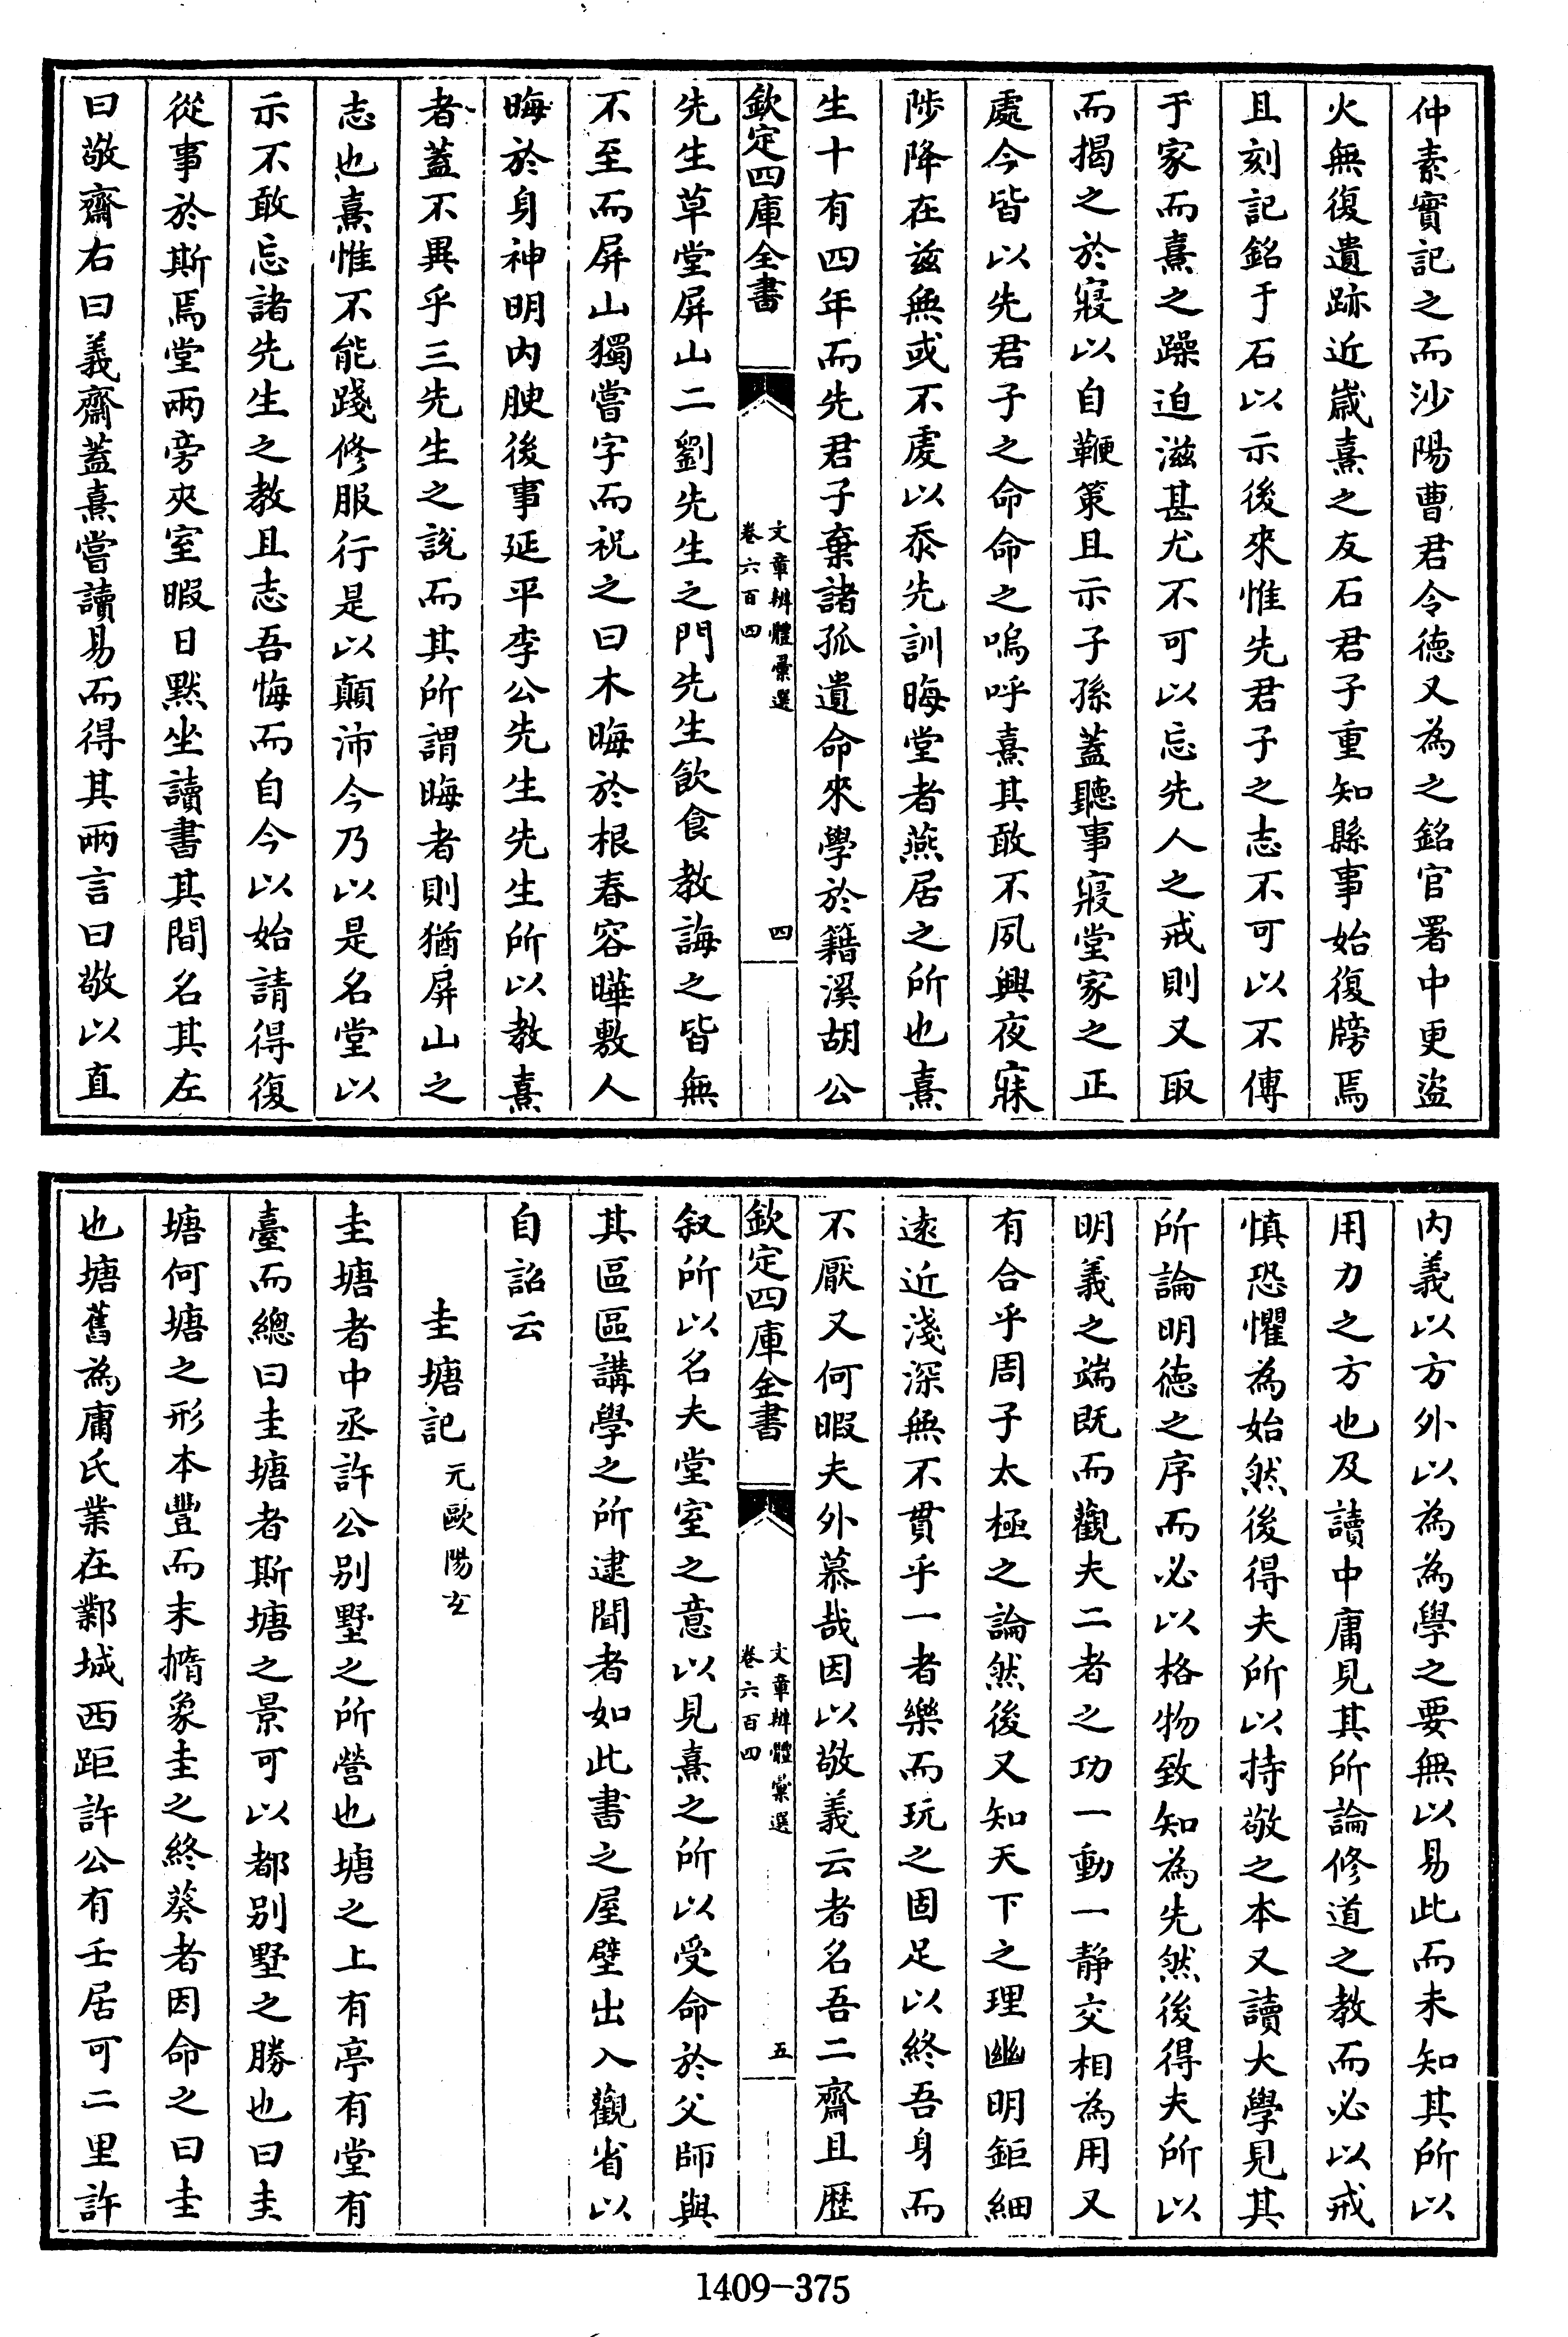 仲素實記之而沙陽曹君令徳又為之銘官署中更盜
火無復遺跡近嵗熹之友石君子重知縣事始復牓焉
且刻記銘于石以示後來惟先君子之志不可以不傳
于家而熹之躁迫滋甚尤不可以忘先人之戒則又取
而揭之於寢以自鞭策且示子孫蓋聽事寢堂家之正
處今皆以先君子之命命之嗚呼熹其敢不夙興夜寐
陟降在兹無或不䖍以忝先訓晦堂者燕居之所也熹
生十有四年而先君子棄諸孤遺命來學於籍溪胡公
欽定四庫全書
文章辨體彙選
卷六百四
四
先生草堂屏山二劉先生之門先生飲食教誨之皆無
不至而屏山獨嘗字而祝之曰木晦於根春容曄敷人
晦於身神明内腴後事延平李公先生先生所以教熹
者蓋不異乎三先生之說而其所謂晦者則猶屏山之
志也熹惟不能踐修服行是以顛沛今乃以是名堂以
示不敢忘諸先生之教且志吾悔而自今以始請得復
從事於斯焉堂兩旁夾室暇日默坐讀書其間名其左
曰敬齋右曰義齋蓋熹嘗讀易而得其兩言曰敬以直
内義以方外以為為學之要無以易此而未知其所以
用力之方也及讀中庸見其所論修道之教而必以戒
慎恐懼為始然後得夫所以持敬之本又讀大學見其
所論明徳之序而必以格物致知為先然後得夫所以
明義之端既而觀夫二者之功一動一静交相為用又
有合乎周子太極之論然後又知天下之理幽明鉅細
逺近淺深無不貫乎一者樂而玩之固足以終吾身而
不厭又何暇夫外慕哉因以敬義云者名吾二齋且歴
欽定四庫全書
文章辨體彙選
卷六百四
五
叙所以名夫堂室之意以見熹之所以受命於父師與
其區區講學之所逮聞者如此書之屋壁出入觀省以
自詔云
圭塘記元歐陽玄
圭塘者中丞許公别墅之所營也塘之上有亭有堂有
臺而總曰圭塘者斯塘之景可以都别墅之勝也曰圭
塘何塘之形本豐而末撱象圭之終葵者因命之曰圭
也塘舊為庸氏業在鄴城西距許公有壬居可二里許
1409-375